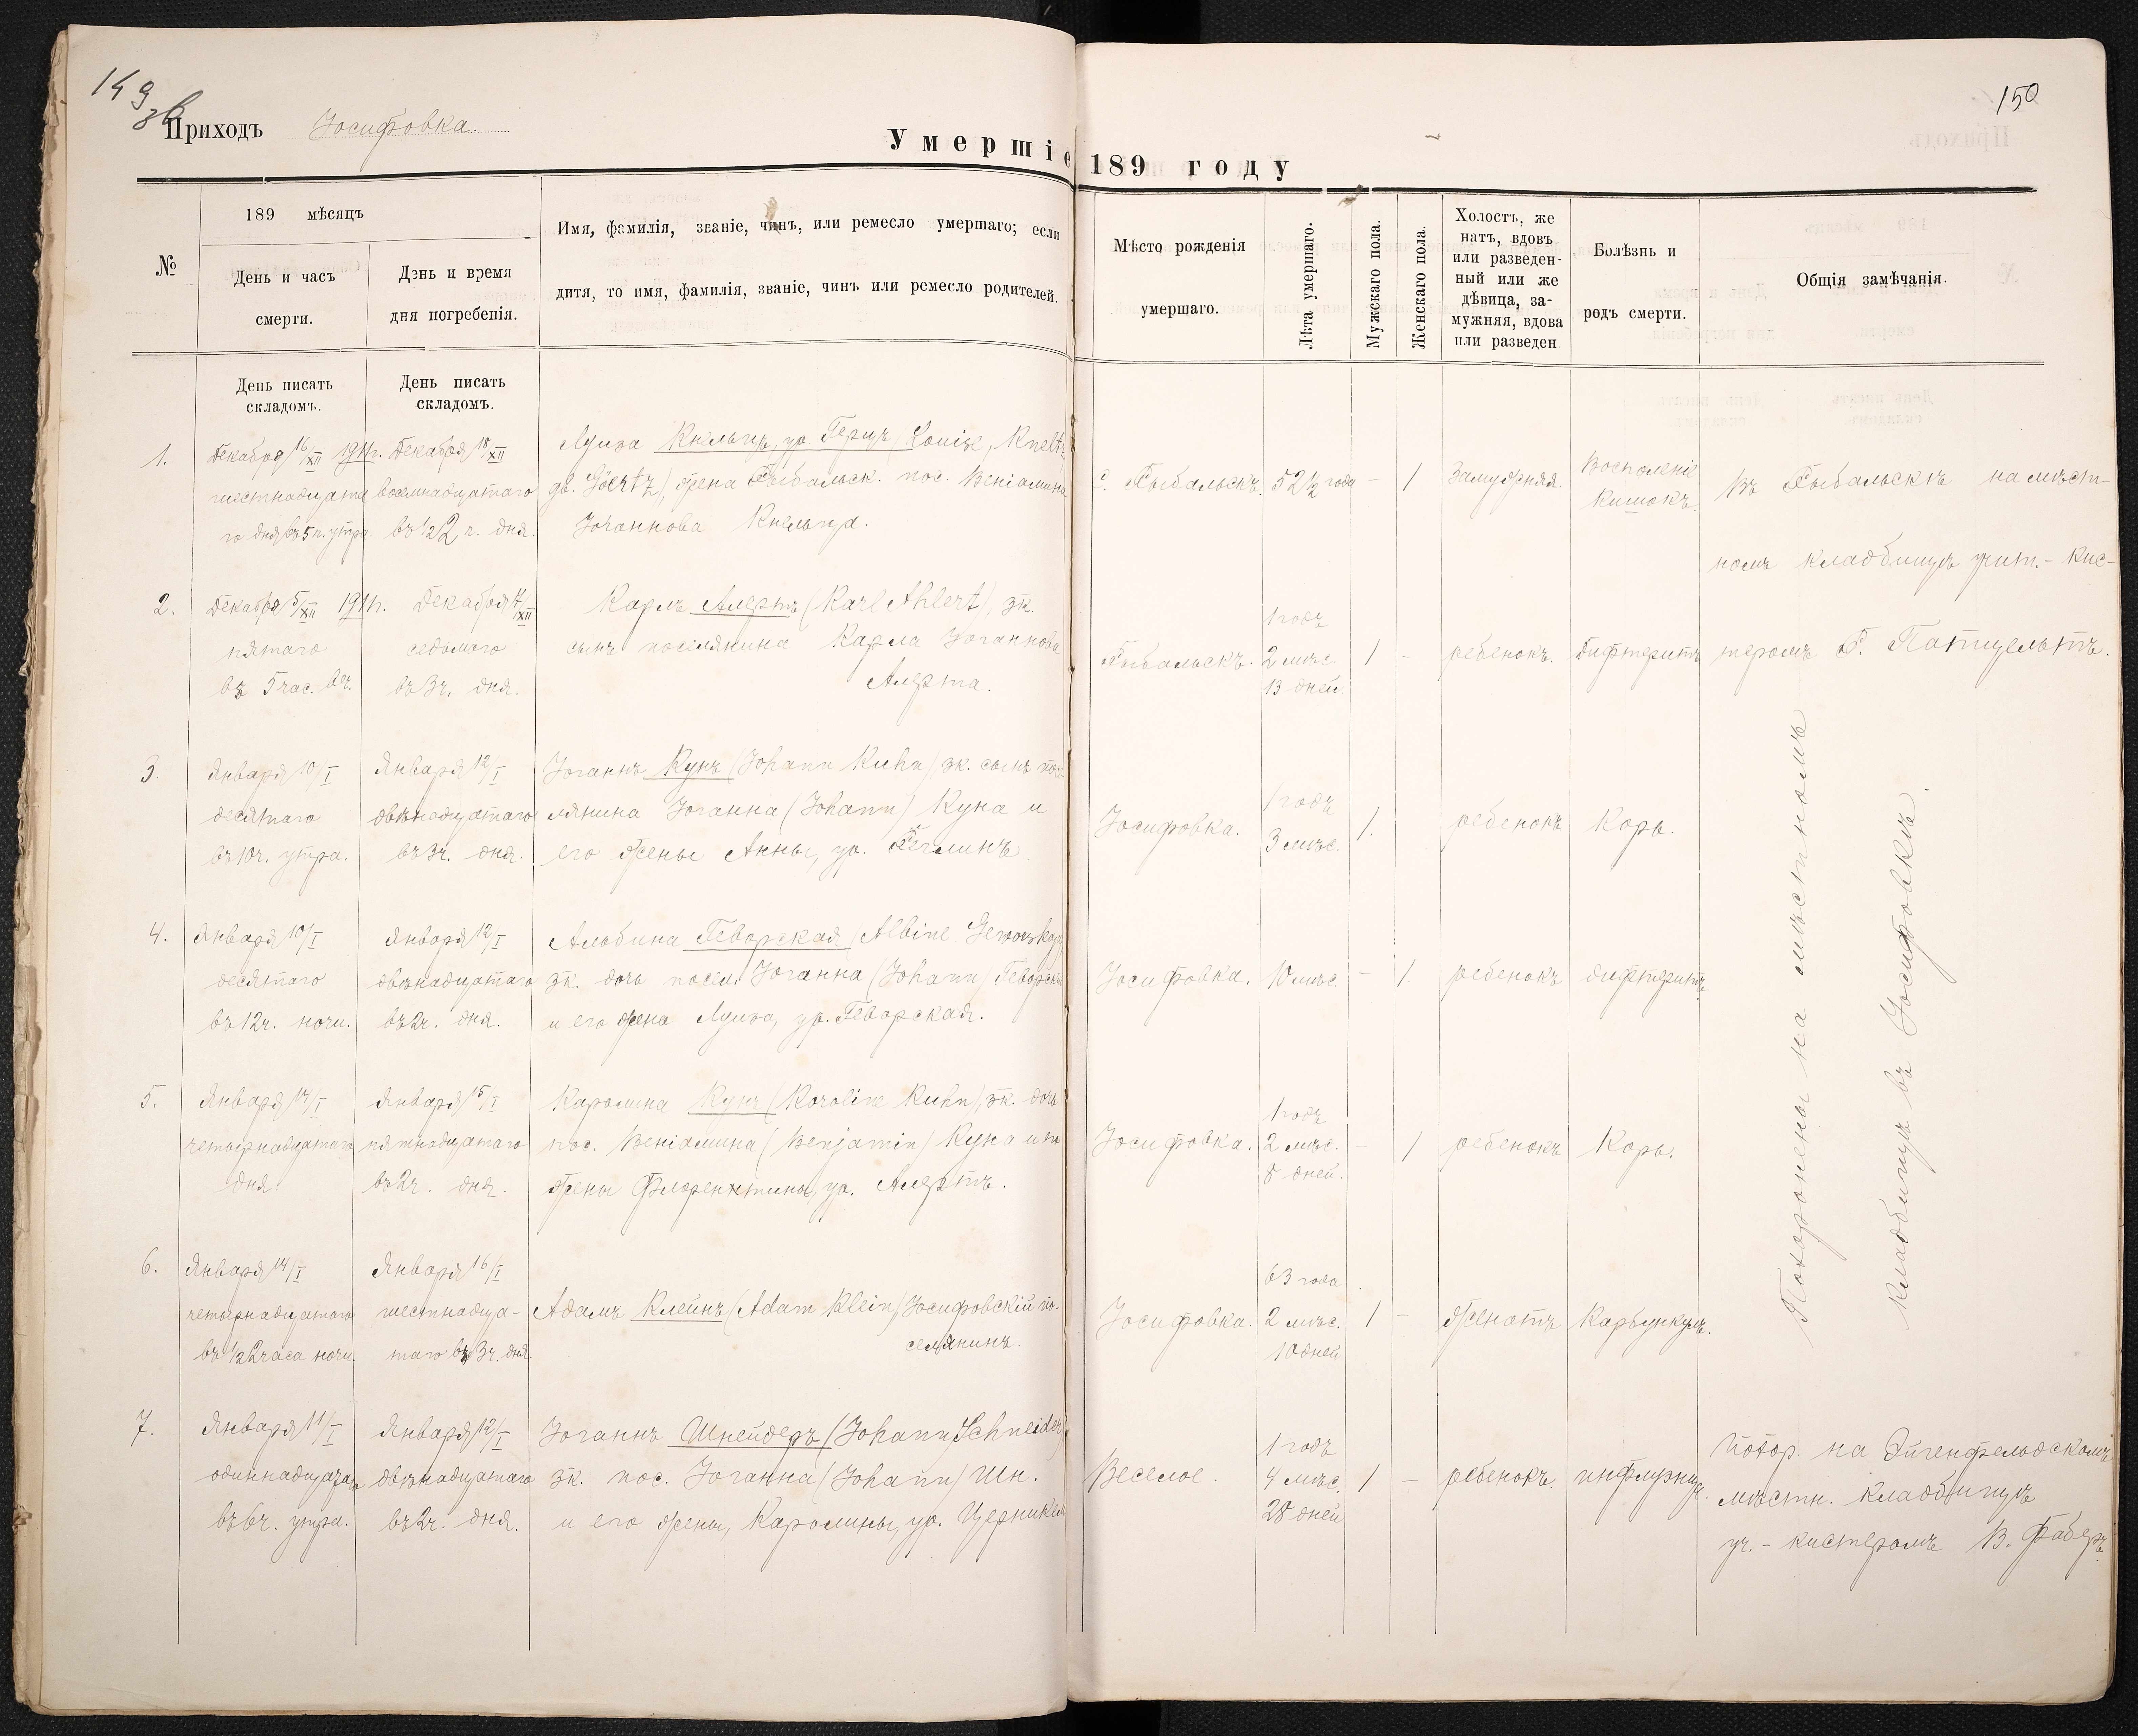 149 об
Приходъ Іосифовка.
Умершіе 189 году
150
№
189 мѣсяцъ
День и часъ
смерти.
День и время
дня погребенія.
Имя, фамилія, званіе, чинъ, или ремесло умершаго; если
дитя, то имя, фамилія, званіе, чинъ или ремесло родителей.
Мѣсто рожденія
умершаго.
Лѣта умершаго.
Мужскаго пола.
Женскаго пола.
Холостъ, же
натъ, вдовъ
или разведен-
ный или же
дѣвица, за-
мужняя, вдова
или разведен
Болѣзнь и
родъ смерти.
Общія замѣчанія.
День писать
складомъ.
День писать
складомъ.
1.
Декабря 16/XII 1911г.
шестнадцата
го дня въ 5 ч. утра.
Декабря 18/XII
восемнадцатаго
въ 1/2 2 ч. дня.
Луиза Кнельцъ, ур. Герцъ (Louise, Kneltz
gb. Göertz), жена Рыбальск. пос. Веніамина
Іоганнова Кнельца.
с. Рыбальскъ.
52 1/2 года
-
1
Замужняя.
Воспаленіе
Кишокъ.
Въ Рыбальскѣ на мѣст-
номъ кладбищѣ учит.-кис-
теромъ Г. Патцельтъ.
2.
Декабря 5/XII 1911г.
пятаго
въ 5 час. веч.
Декабря 7/XII
седьмого
въ 3 ч. дня.
Карлъ Алертъ (Karl Ahlert), зк.
сынъ поселянина Карла Іоганнова
Алерта.
Рыбальскъ.
1 годъ
2 мѣс.
13 дней.
1
-
ребенокъ.
Дифтеритъ
3.
Января 10/I
десятаго
въ 10ч. утра.
Января 12/I
двѣнадцатаго
въ 3ч. дня.
Іоганнъ Кунъ (Johann Kuhn) зк. сынъ посе-
лянина Іоганна (Johann) Куна и
его жены Анны, ур. Геглинъ.
Іосифовка.
1 годъ
3 мѣс.
1.
ребенокъ
Корь.
4.
Января 10/I
десятаго
въ 12ч. ночи.
Января 12/I
двѣнадцатаго
въ 2ч. дня.
Альбина Геворская (Albine Geworskaja
зк. дочь посел. Іоганна (Johann) Геворск
и его жена Луиза, ур. Геворская.
Іосифовка.
10 мѣс.
-
1.
ребенокъ
дифтеритъ.
5.
Января 14/I
четырнадцатаго
дня.
Января 15/I
пятнадцатаго
въ 2ч. дня.
Каролина Кунъ (Karoline Kuhn), зк. дочь
пос. Веніамина (Benjamin) Куна и
жены Флорентины, ур. Алертъ.
Іосифовка.
1 годъ
2 мѣс.
8 дней.
-
1
ребенокъ
Корь.
6.
Января 14/I
четырнадцатаго
въ 1/2 2 часа ночи.
Января 16/I
шестнадца-
таго въ 3ч. дня.
Адамъ Клейнъ (Adam Klein) Іосифовскій по-
селянинъ.
Іосифовка.
63 года
2 мѣс.
10 дней
1
-
женатъ
Карбункулъ.
Похоронены на мѣстномъ
кладбищѣ въ Іосифовкѣ.
7.
Января 11/I
одиннадцатаго
въ 6ч. утра.
Января 12/I
двѣнадцатаго
въ 2ч. дня.
Іоганнъ Шнейдеръ (Johann Schneider)
зк. пос. Іоганна (Johann) Шн.
и его жены, Каролины, ур. Церникель
Веселое.
1 годъ
4 мѣс.
28 дней
1
-
ребенокъ.
инфлуэнца.
Похор. на Эйгенфельдскомъ
мѣстн. кладбищѣ
уч.-кистеромъ В. Фаберъ.